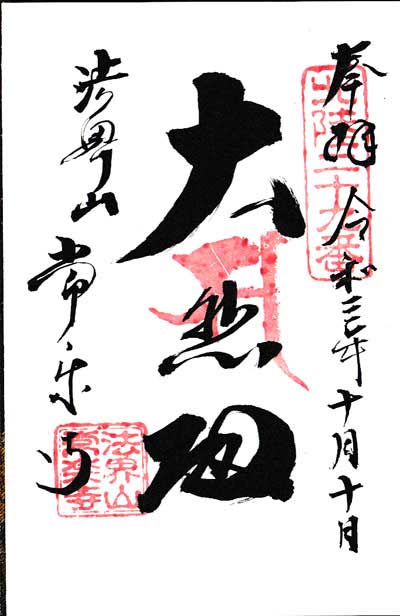 奉拝 令和三年十月十日
北陸二十九番
大悲殿
法界山 常楽寺
法界山
常楽寺